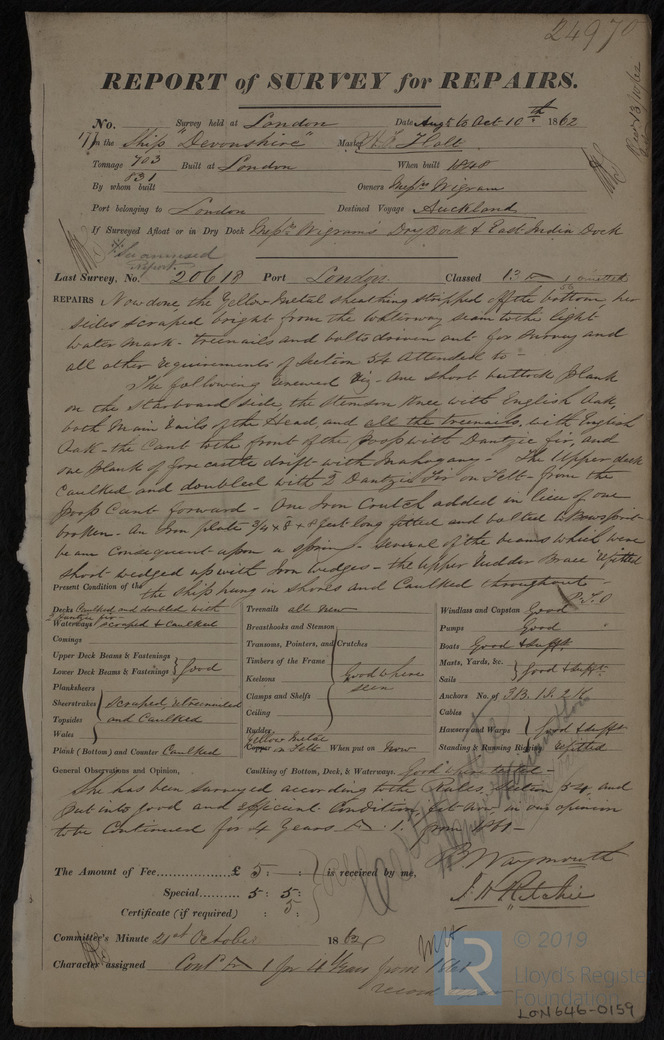 24970
REPORT of SURVEY for REPAIRS.
No. Survey held at London Date Aug 5 to Oct 10th 1862
In the Ship "Devonshire" Master Holt
Tonnage 703 Built at London When built 1848
831
By whom built Owners Messrs Wigram
Port belonging to London Destined Voyage Auckland
If Surveyed Afloat or in Dry Dock Messrs Wigrams Dry Dock & East India Dock
Last Survey, No. 20618 Port London Classed 13
REPAIRS Now done, the Yellow Metal sheathing stripped off the bottom her
sides scraped bright from the waterway seam to the light
water mark - treenails and bolts driven out for survey and
all other requirements of Section 54 attended to
The following renewed viz - One short buttock plank
on the Starboard side the Stemson Knee with English Oak,
both Main Rails of the Head, and all the treenails, with English
Oak - the Cant to the front of the Poop with Dantzic fir, and
one plank of forecastle drift with Mahogany - The Upper deck
Caulked and doubled with 3 Dantzic Fir on Felt - from the
Poop Cant forward - One Iron Crutch added in lieu of one
broken - An Iron plate 3/4 x 8 x 8 feet long fitted and bolted to Bowsprit
beam consequent upon a spring - Several of the beams which were
short wedged up with Iron Wedges - the Upper Rudder Brace refitted
the ship hung in shores and Caulked throughout -
P.T.O
Present Condition of the
Decks Caulked and doubled with
Dantzic fir
Waterways scraped & caulked
Comings
Upper Deck Beams & Fastenings
Lower Deck Beams & Fastenings } Good
Planksheers
Sheerstrakes
Topsides
Wales } scraped, retreenailed
and Caulked
Plank (Bottom) and Counter Caulked
Treenails all new
Breasthooks and Stemson
Transoms, Pointers, and Crutches
Timbers of the Frame
Keelsons
Clamps and Shelfs
Ceiling
Rudder } Good where
seen
Yellow Metal
Copper on Felt When put on Now
Windlass and Capstan Good
Pumps Good
Boats Good & sufft
Masts, Yards, &c.
Sails } Good & sufft
Anchors No. of 3B. 1S. 2K
Cables
Hawsers and Warps } Good & sufft
Standing & Running Rigging Refitted
General Observations and Opinion, Caulking of Bottom, Deck, & Waterways. Good when tested -
She has been surveyed according to the Rules, Section 54 and
put into good and efficient Condition, in our opinion
to be Continued for 4 Years A. 1. from 1861 -
The Amount of Fee......£ 5 : : is received by me,
Special.......... 5 : 5 :
Certificate (if required) : 5 :
Waymouth
Ritchie
Committee's Minute 21st October 1862
Character assigned Contd A 1 for 4 Years from 1861
© 2019
LR
Lloyd's Register
Foundation
LON646-0159